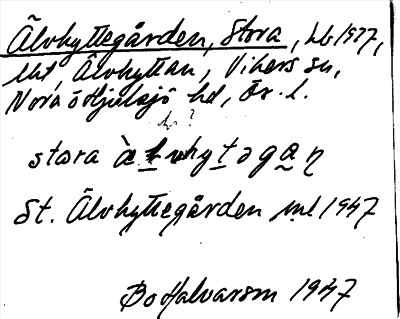 Älvhyttegården, Stora, hb 1927,
Uht, Älvhyttan, Vikers sn,
Nora o Hjulsjö hd, Ör. l.
?
stora
St. Älvhyttegården ml 1947
Bo Halvarson 1947